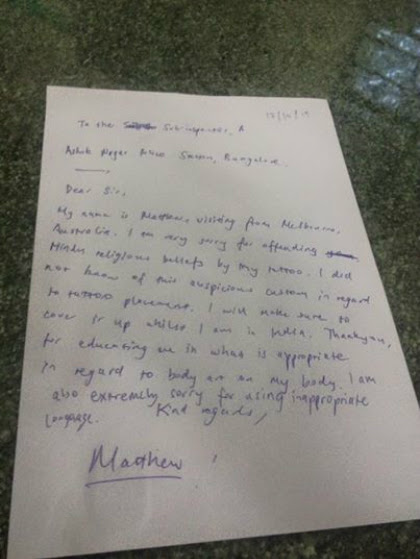 To the Sub inspector, &
Ashok Nagar Police Station, Bangalore.
Dear Sir,
My name is Matthew, visiting from Melbourne,
Australia. I am very sorry for offending
Hindu religious beliefs by my tattoo. I did
not know of this auspicious custom in regard
to tattoo placement. I will make sure to
cover it up whilst I am in India. Thankyou,
for educating me in what is appropriate
in regard to body art on my body. I am
also extremely sorry for using inappropriate
language. Kind regards,
Matthew